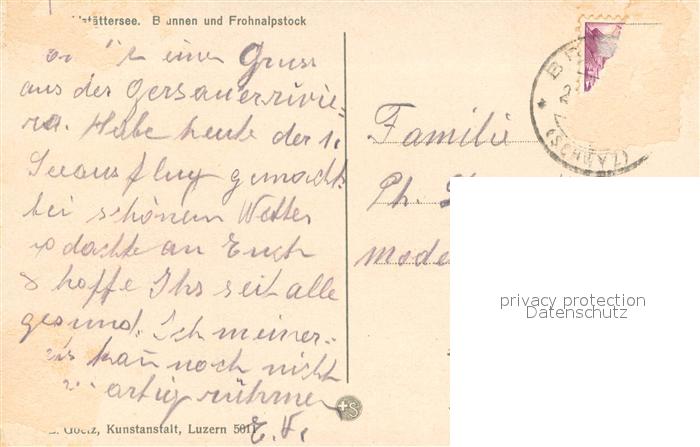 stättersee. Brunnen und Frohnalpstock
einen Gruss
aus der Gersauerrivie=
ra. Habe heute der 1.
Seeausflug gemacht
bei schönem Wetter
dachte an Euch
& hoffe Ihr seit alle
gesund. Ich meiner=
kan noch nicht
artig rühmen
E. H.
Goetz, Kunstanstalt, Luzern 501
Familie
Ph.
Mode
(SCHWYZ)
privacy protection
Datenschutz